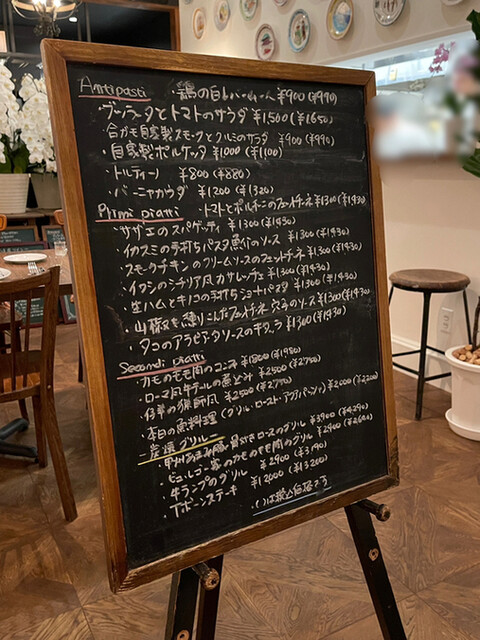 Antipasti
・鶏の白レバームース ¥900(¥990)
・ブッラータとトマトのサラダ ¥1500(¥1650)
・合ガモ自家製スモークとクルミのサラダ ¥900(¥990)
・自家製ポルケッタ ¥1000(¥1100)
・トルティーノ ¥800(¥880)
・バーニャカウダ ¥1200(¥1320)
Primi piatti
・トマトとポルチーニのフェットチーネ ¥1300(¥1430)
・サザエのスパゲッティ ¥1300(¥1430)
・イカスミの手打ちパスタ魚介のソース ¥1300(¥1430)
・スモークチキンのクリームソースのフェットチーネ ¥1300(¥1430)
・イワシのシチリア風カサレッチェ ¥1300(¥1430)
・生ハムとキノコの手打ちショートパスタ ¥1300(¥1430)
・山椒を練りこんだフェットチーネ 穴子のソース ¥1300(¥1430)
・タコのアラビアータソースのキタッラ ¥1300(¥1430)
Secondi piatti
・カモのもも肉のコンフィ ¥1800(¥1980)
・ローマ風牛テールの煮込み ¥2500(¥2750)
・仔羊の猟師風 ¥2500(¥2750)
・本日の魚料理(グリル・ロースト・アクアパッツァ) ¥2000(¥2200)
炭焼グリル
・甲州あまみ豚 骨付きロースのグリル ¥3900(¥4290)
・ビュルゴー家のカモのもも肉のグリル ¥2400(¥2640)
・牛ランプのグリル ¥2900(¥3190)
・Tボーンステーキ ¥12000(¥13200)
・( )は税込価格です